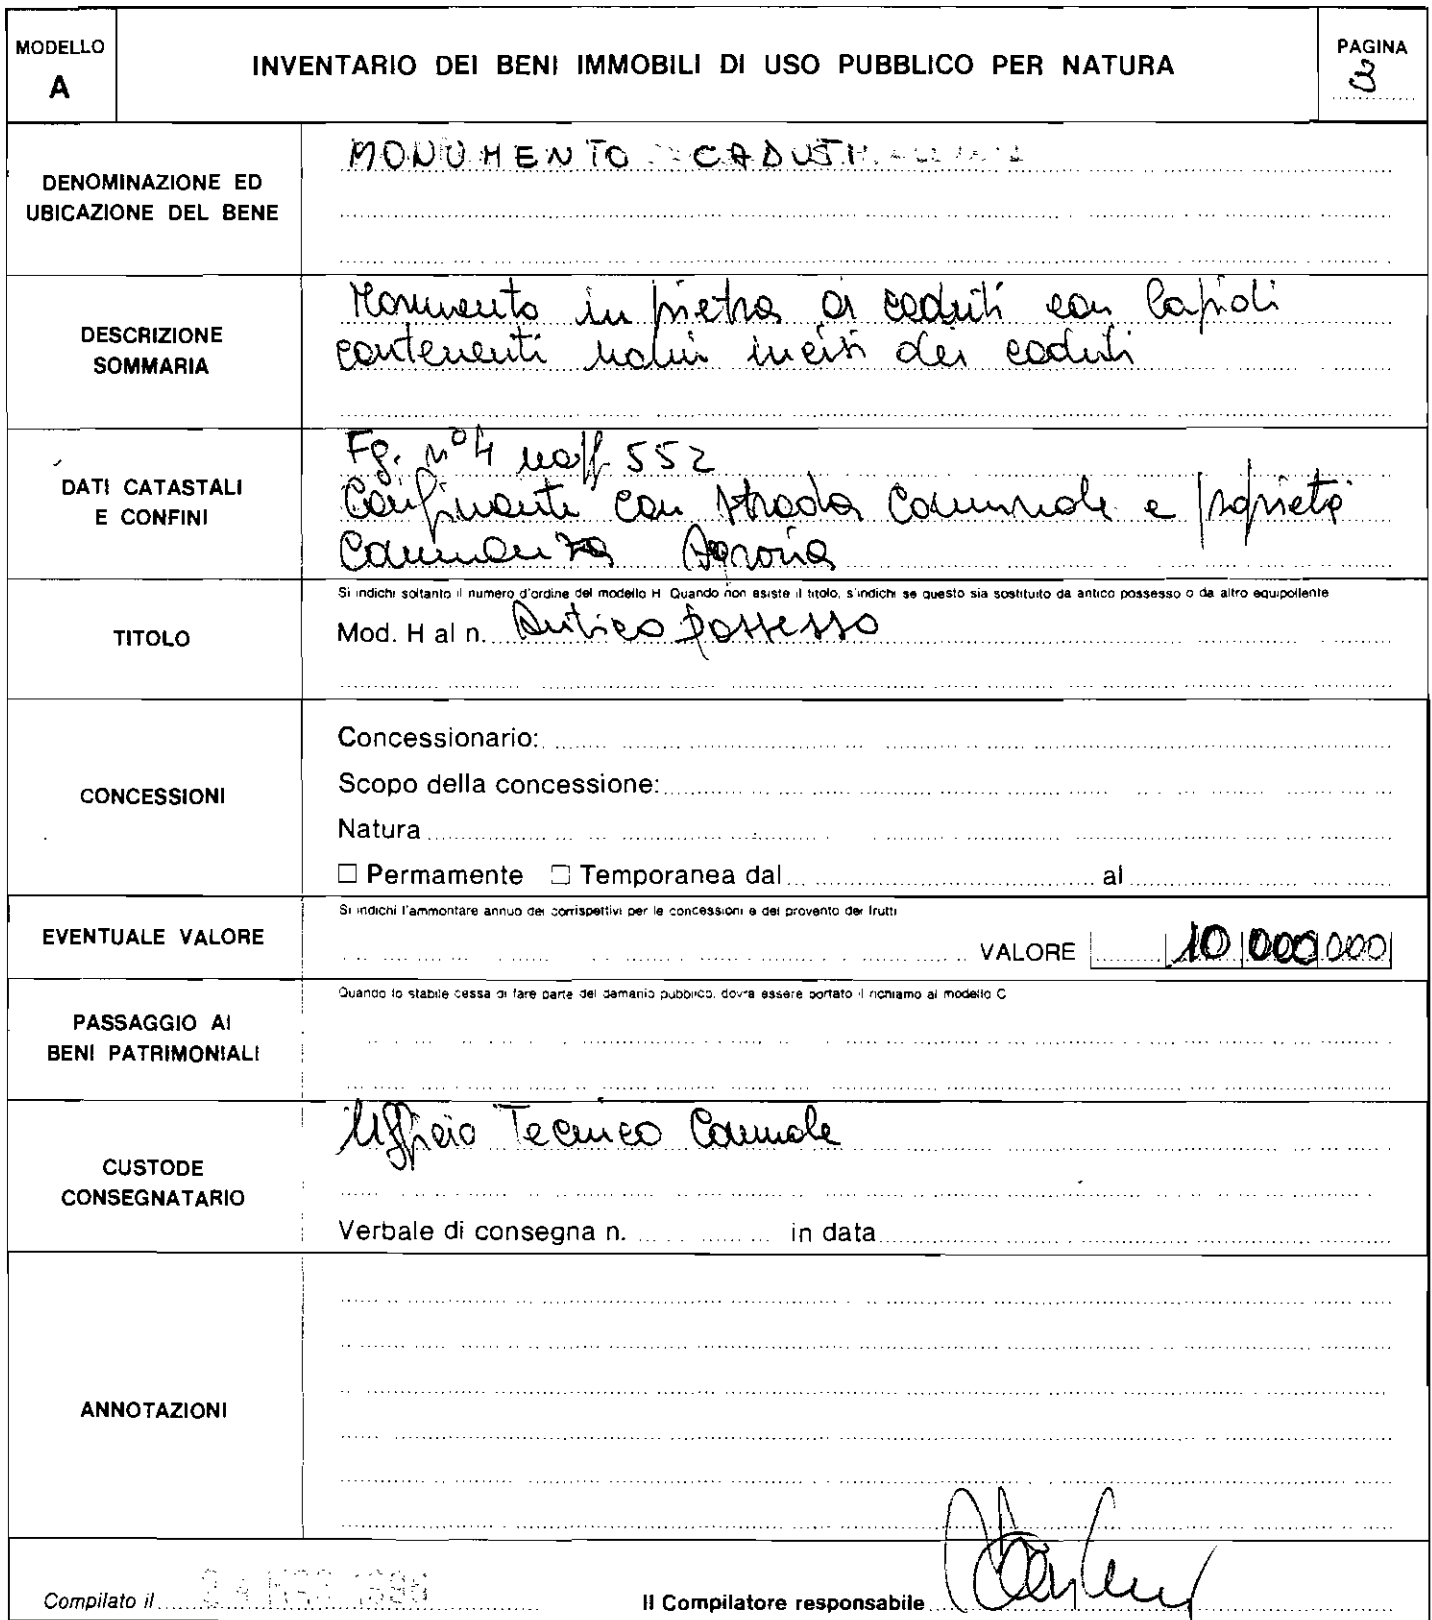 MODELLO
A
INVENTARIO DEI BENI IMMOBILI DI USO PUBBLICO PER NATURA
PAGINA
3
DENOMINAZIONE ED
UBICAZIONE DEL BENE
MONUMENTO CADUTI
DESCRIZIONE
SOMMARIA
Monumento in pietra ai caduti con lapidi
contenenti nomi incisi dei caduti
DATI CATASTALI
E CONFINI
Fg. n° 4 mapp 552
Confinante con strada Comunale e proprietà
Comunanza Agraria
TITOLO
Si indichi soltanto il numero d'ordine del modello H. Quando non esiste il titolo, s'indichi se questo sia sostituito da antico possesso o da altro equipollente
Mod. H al n. Antico possesso
CONCESSIONI
Concessionario:
Scopo della concessione:
Natura
☐ Permamente ☐ Temporanea dal al
EVENTUALE VALORE
Si indichi l'ammontare annuo dei corrispettivi per le concessioni e del provento dei frutti
VALORE 10 000 000
PASSAGGIO AI
BENI PATRIMONIALI
Quando lo stabile cessa di fare parte del demanio pubblico, dovrà essere portato il richiamo al modello C
CUSTODE
CONSEGNATARIO
Ufficio Tecnico Comunale
Verbale di consegna n. in data
ANNOTAZIONI
Compilato il
Il Compilatore responsabile